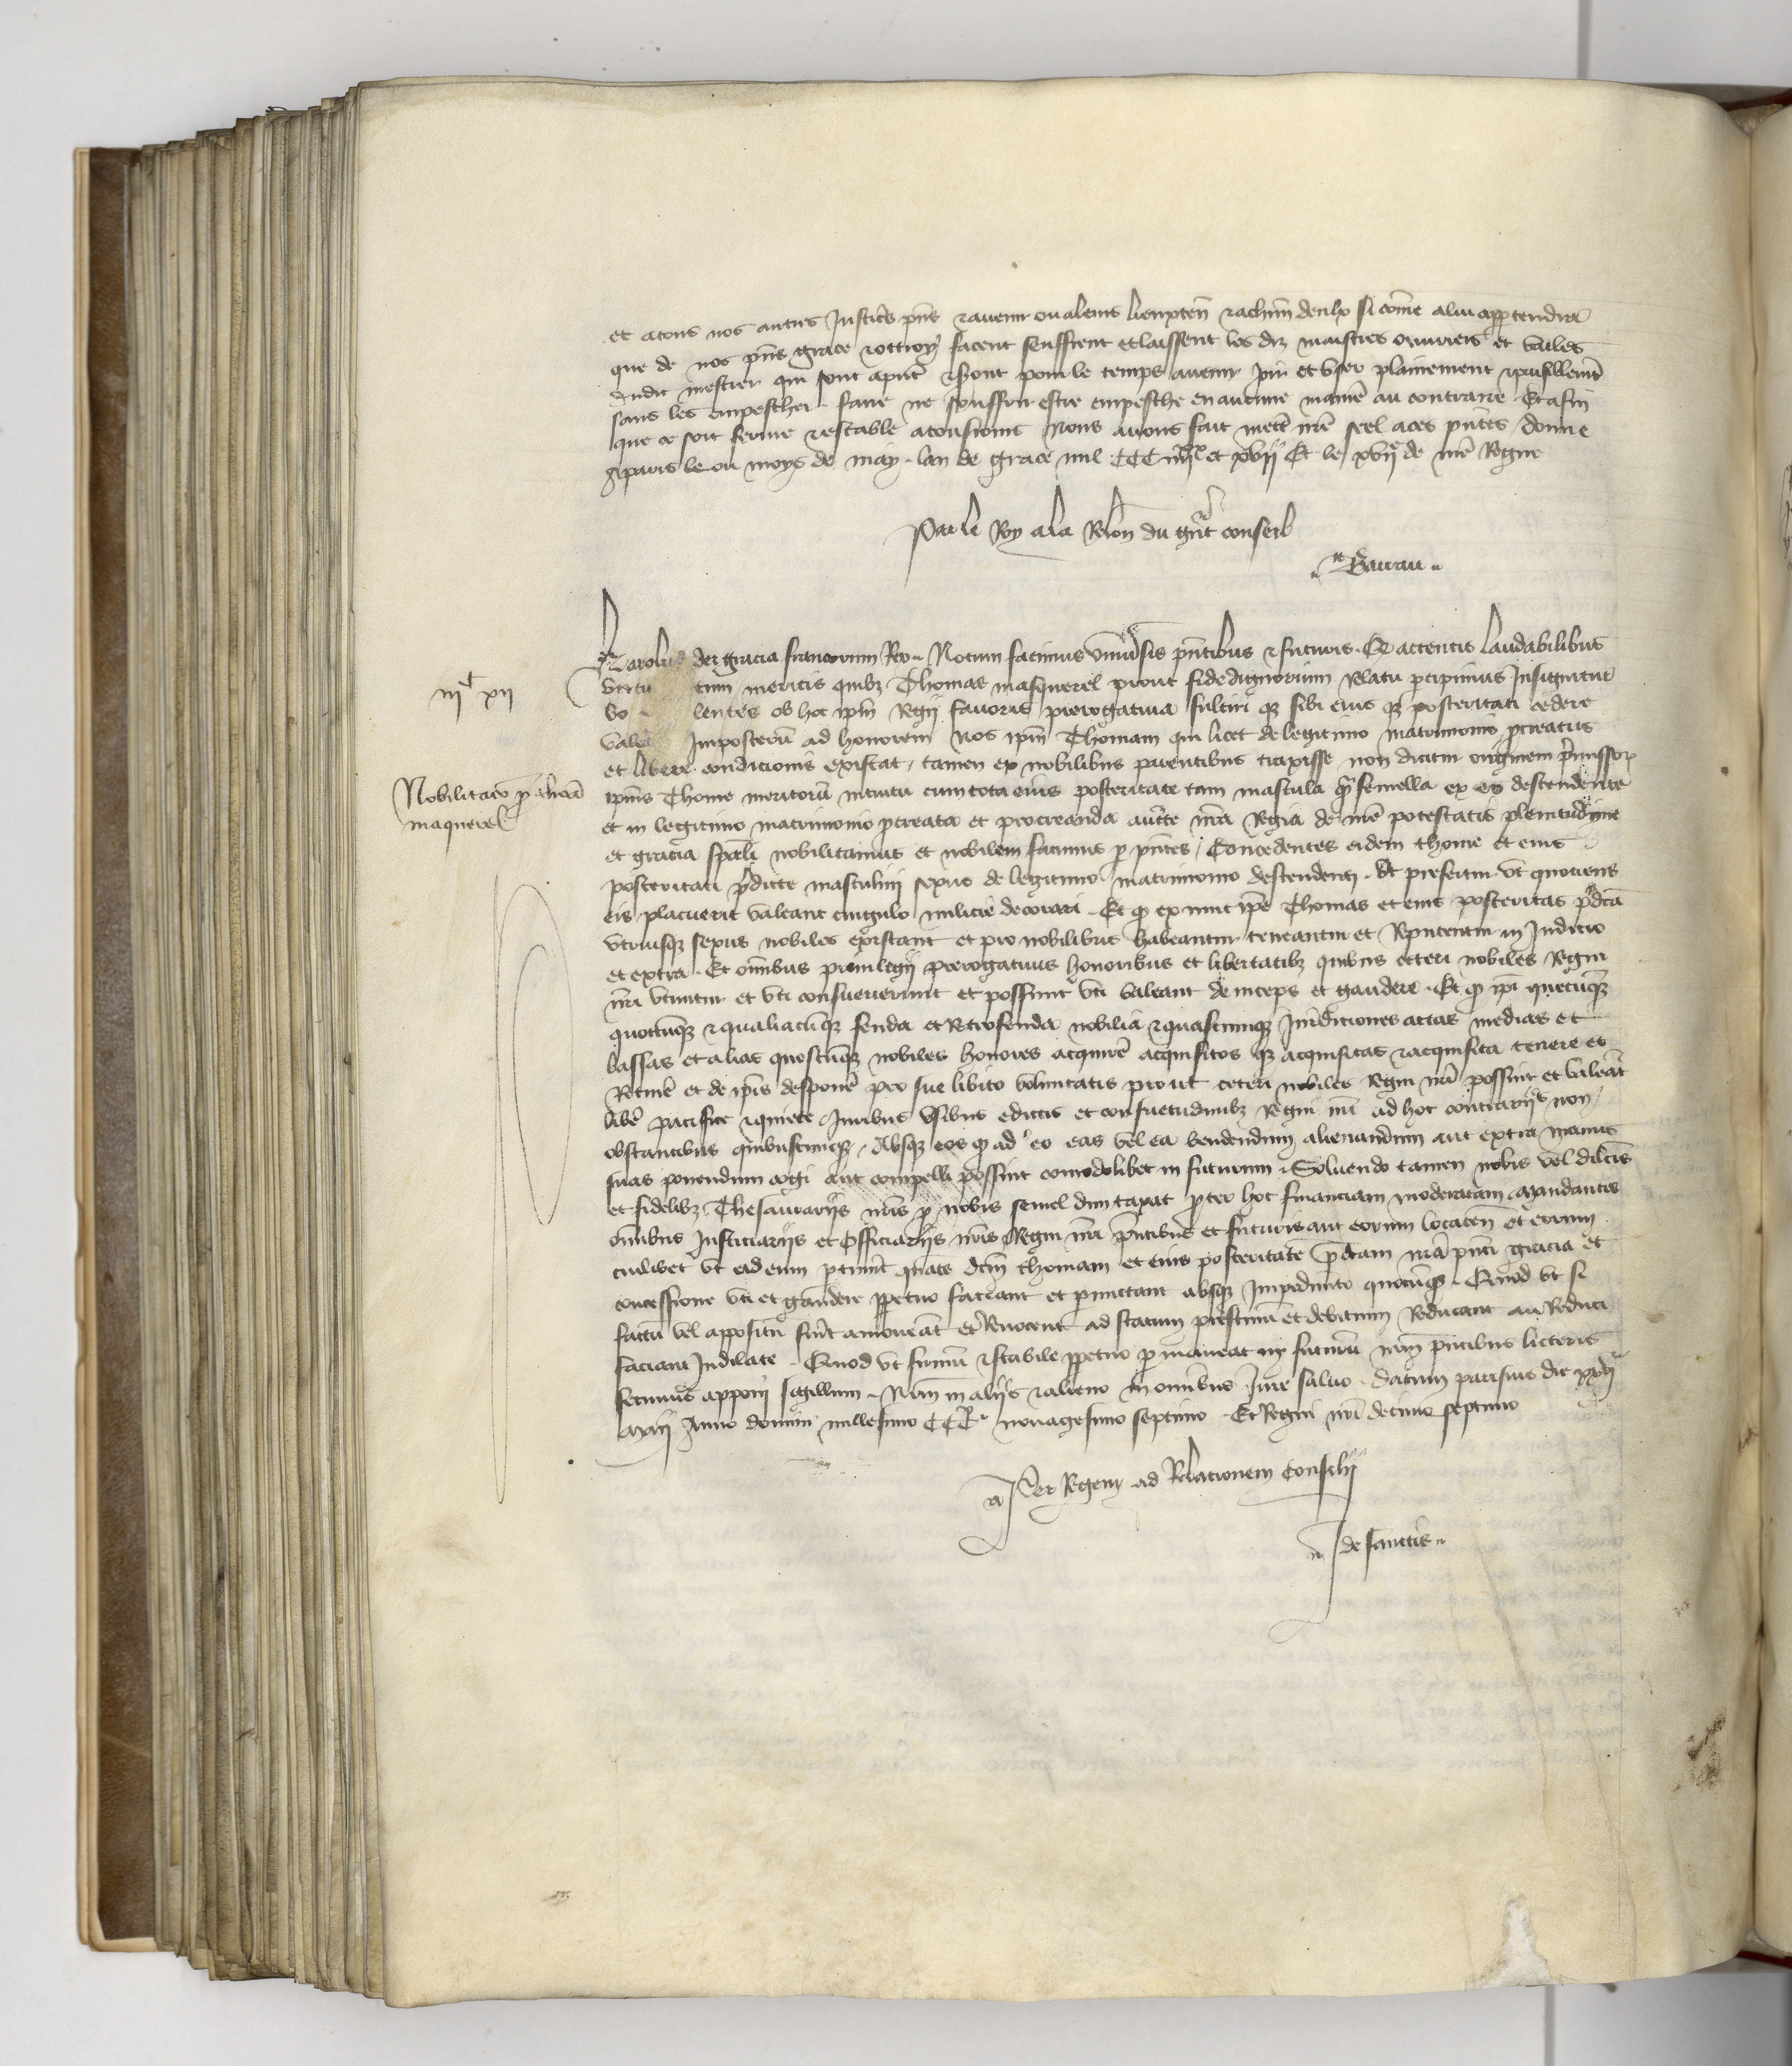 et a tous nos autres Justic̃s p̃ns ⁊ avenir ou a leurs lieuxten̄ ⁊ a chũn deulx si com̃e a lui appertendra
que de nos p̃ns grace ⁊ ottroy facent seuffrent et laissent les diz maistres ouuriers et varles
dudit mestier qui sont a p̃nt ⁊ seront pour le temps auenir joir et user plainement ⁊ paisiblemt̃
sans les empescher faire ne souffrir estre empesche en aucune manie᷑ au contraire Et afin
que ce soit ferme ⁊ estable a tousiours Nous auons fait mett᷑ nr̃e seel a ces p̃ntes / donne
a paris le ou moys de may lan de grace mil CCC iiijxx et xvij Et le xvije de nr̃e Regne
Par le Roy a la Relon̄ du grãt conseil
Barrau
Karolus dei gracia francorum Rex Notum facimus vniũsis p̃ntibus ⁊ futuris Q attentis laudabilibus
virtu tum meritis quibꝫ Thomas masquerel prout fidedignorum relatu p̃cipimus Insignitur
vo lentes ob hoc ip̃m Regij fauoris prerogatiua fulciri qꝫ sibi eius qꝫ posteritati cedere
vale Imposterũ ad honorem Nos ip̃m Thomam qui licet de legitimo matrimonio ꝓcreatus
et libere condicionis existat / tamen ex nobilibus parentibus traxisse non dicitur originem p̃missoꝝ
ip̃ius Thome meritorũ intuitu cum tota eius posteritate tam mascula q̃ femella ex eo descendente
et in legitimo matrimonio ꝓcreata et procreanda auctte nr̃a Regia de nr̃e potestatis plenitudine
et gracia sp̃ali nobilitamus et nobilem facimus ꝑ p̃ntes / Concedentes eidem thome et eius
posteritati p̃dicte masculini sexus de legitimo matrimonio descendenti Vt presertim vt quociens
eis placuerit valeant cingulo milicie decorari Et ꝙ ex nunc ip̃e Thomas et eius posteritas p̃dc̃a
vtriusqꝫ sexus nobiles existant et pro nobilibus habeantur teneantur et Reputentur in Judicio
et extra Et om̃ibus priuilegij prerogatiuis honoribus et libertatibꝫ quibus ceteri nobiles Regni
nr̃i vtuntur et vti consueuerunt et possunt vti valeant deinceps et gaudere Et ꝙ ip̃i quecũqꝫ
quotcũqꝫ ⁊ qualiacũqꝫ feuda et Retrofeuda nobilia ⁊ quascunqꝫ Jur̃diciones altas medias et
bassas et alias quoscũqꝫ nobiles honores acquire᷑ acquisitos qꝫ acquisitas ⁊ acquisita tenere et
Retine᷑ et de ip̃is despone᷑ pro sue libito voluntatis prout ceteri nobiles Regni nr̃i possunt et valeãt
libe᷑ pacifice ⁊ quiete Juribus vsibus edictis et consuetudinibꝫ Regni nr̃i ad hoc contrarijs non
obstantibus quibuscunqꝫ / Absqꝫ eos ꝙ ad eo eas vel ea vendendum alienandum aut extra manus
suas ponendum cogi aut compelli possint comodolibet in futurum Soluendo tamen nobis vel dilc̃is
et fidelibꝫ Thesaurarijs nr̃is ꝓ nobis semel dum taxat ꝓpter hoc financiam moderatam Mandantes
om̃ibus Justiciarijs et Officiarijs nr̃is Regni nr̃i p̃ntibus et futuris aut eorum locaten̄ et eorum
cuilibet vt ad eum ꝑtinũit q̃nats dc̃m thomam et eius posteritate p̃dc̃am nr̃a p̃nti gracia et
concessione vti et gaudere ꝑpetuo faciant et ꝑmictant absqꝫ Impedim̃to quocũqꝫ Quod vt si
factũ vel appositũ fũit amoueãt et Reuocent ad statum pristinũ et debitum Reducant au Reduci
faciant Indilate Quod vt firmũ ⁊ stabile ꝑpetuo ꝑmaneat in futurũ nr̃m p̃ntibus licteris
fecimus apponi sigillum Nr̃o in alijs ⁊ alieno in omnibus Jure saluo Datum parisius die xxij
maij Anno domini millesimo CCCo nonagesimo septimo Et Regni nr̃i decimo septimo
Per Regem ad Relationem Consilij
de sanctis
iijc xij
Nobilitacio ꝓ thoma
maquerel